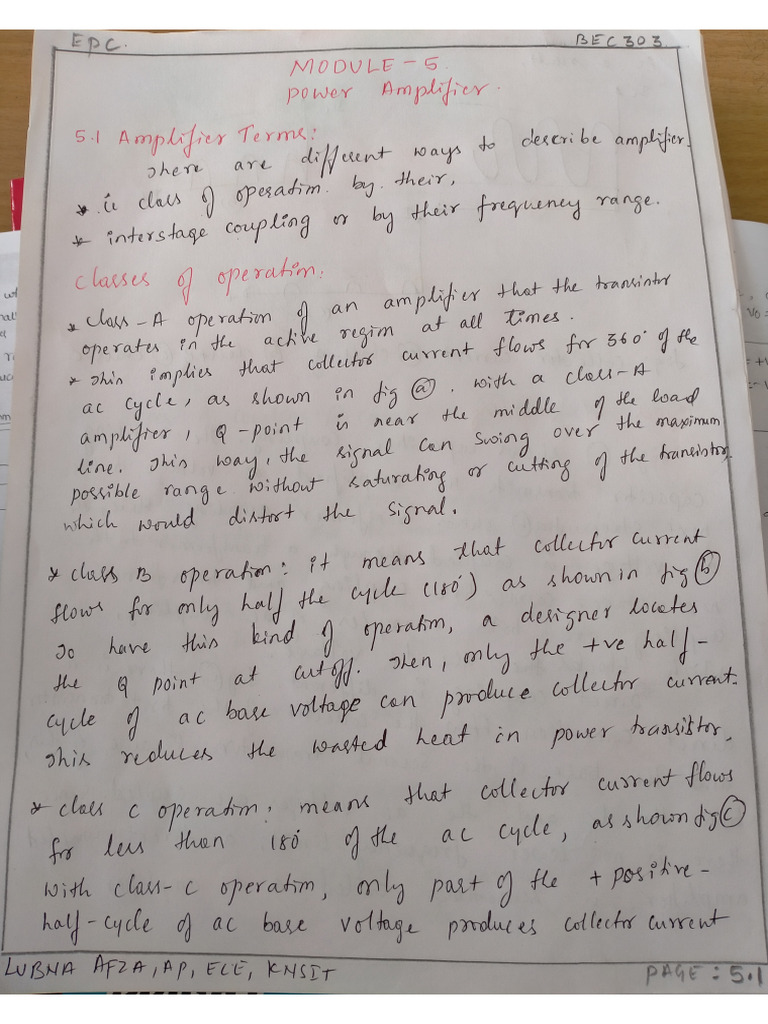 EPC.
BEC303
MODULE - 5
Power Amplifier.
5.1 Amplifier Terms:
There are different ways to describe amplifier.
* ie class of operation. by their,
* interstage coupling or by their frequency range.
Classes of operation:
* class-A operation of an amplifier that the transistor
operates in the active region at all times.
* This implies that collector current flows for 360° of the
ac cycle, as shown in fig (a). with a class-A
amplifier, Q-point is near the middle of the load
line. This way, the signal can swing over the maximum
possible range without saturating or cutting of the transistor,
which would distort the signal.
* class B operation: it means that collector current
flows for only half the cycle (180°) as shown in fig (b)
To have this kind of operation, a designer locates
the Q point at cutoff. Then, only the +ve half-
cycle of ac base voltage can produce collector current.
This reduces the wasted heat in power transistor.
* class C operation: means that collector current flows
for less than 180° of the ac cycle, as shown fig (c)
with class-C operation, only part of the + positive-
half-cycle of ac base voltage produces collector current
LUBNA AFZA, AP, ECE, KNSIT
PAGE: 5.1